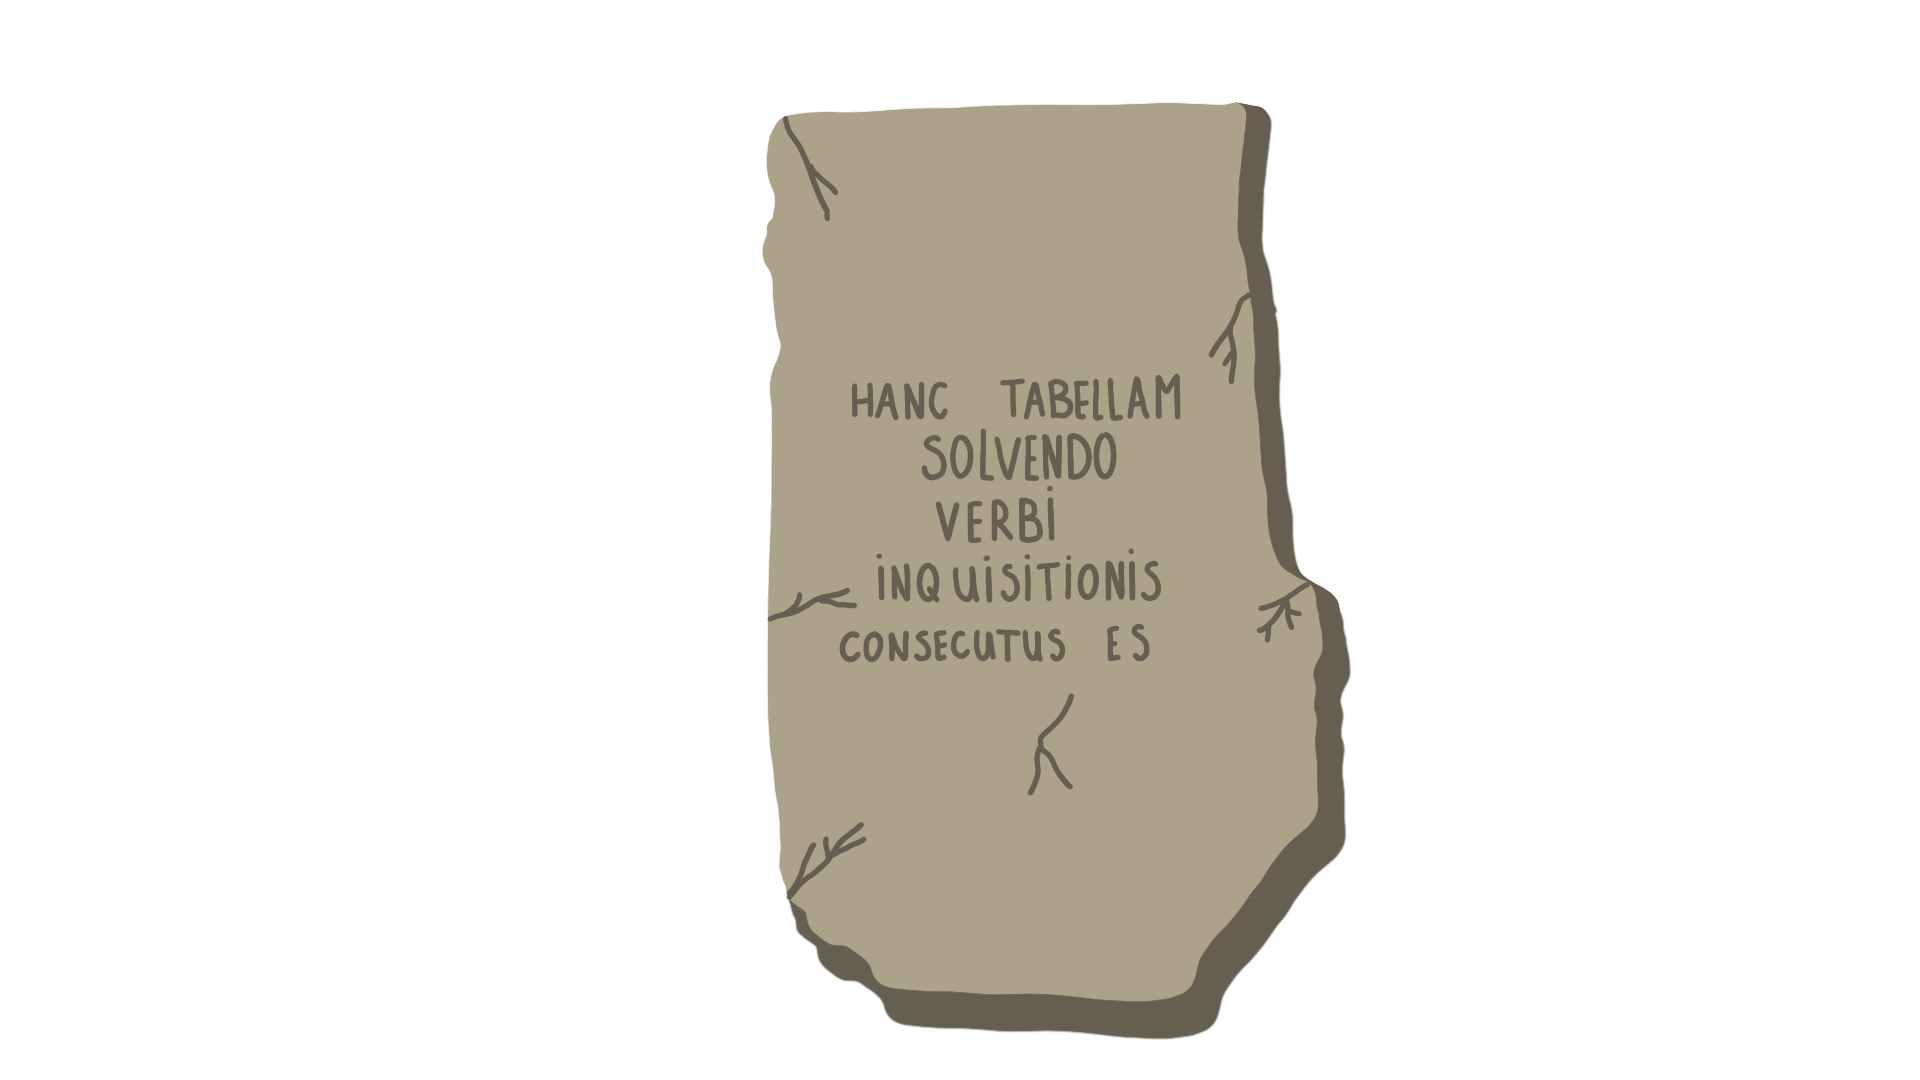 HANC TABELLAM
SOLVENDO
VERBI
INQUISITIONIS
CONSECUTUS ES